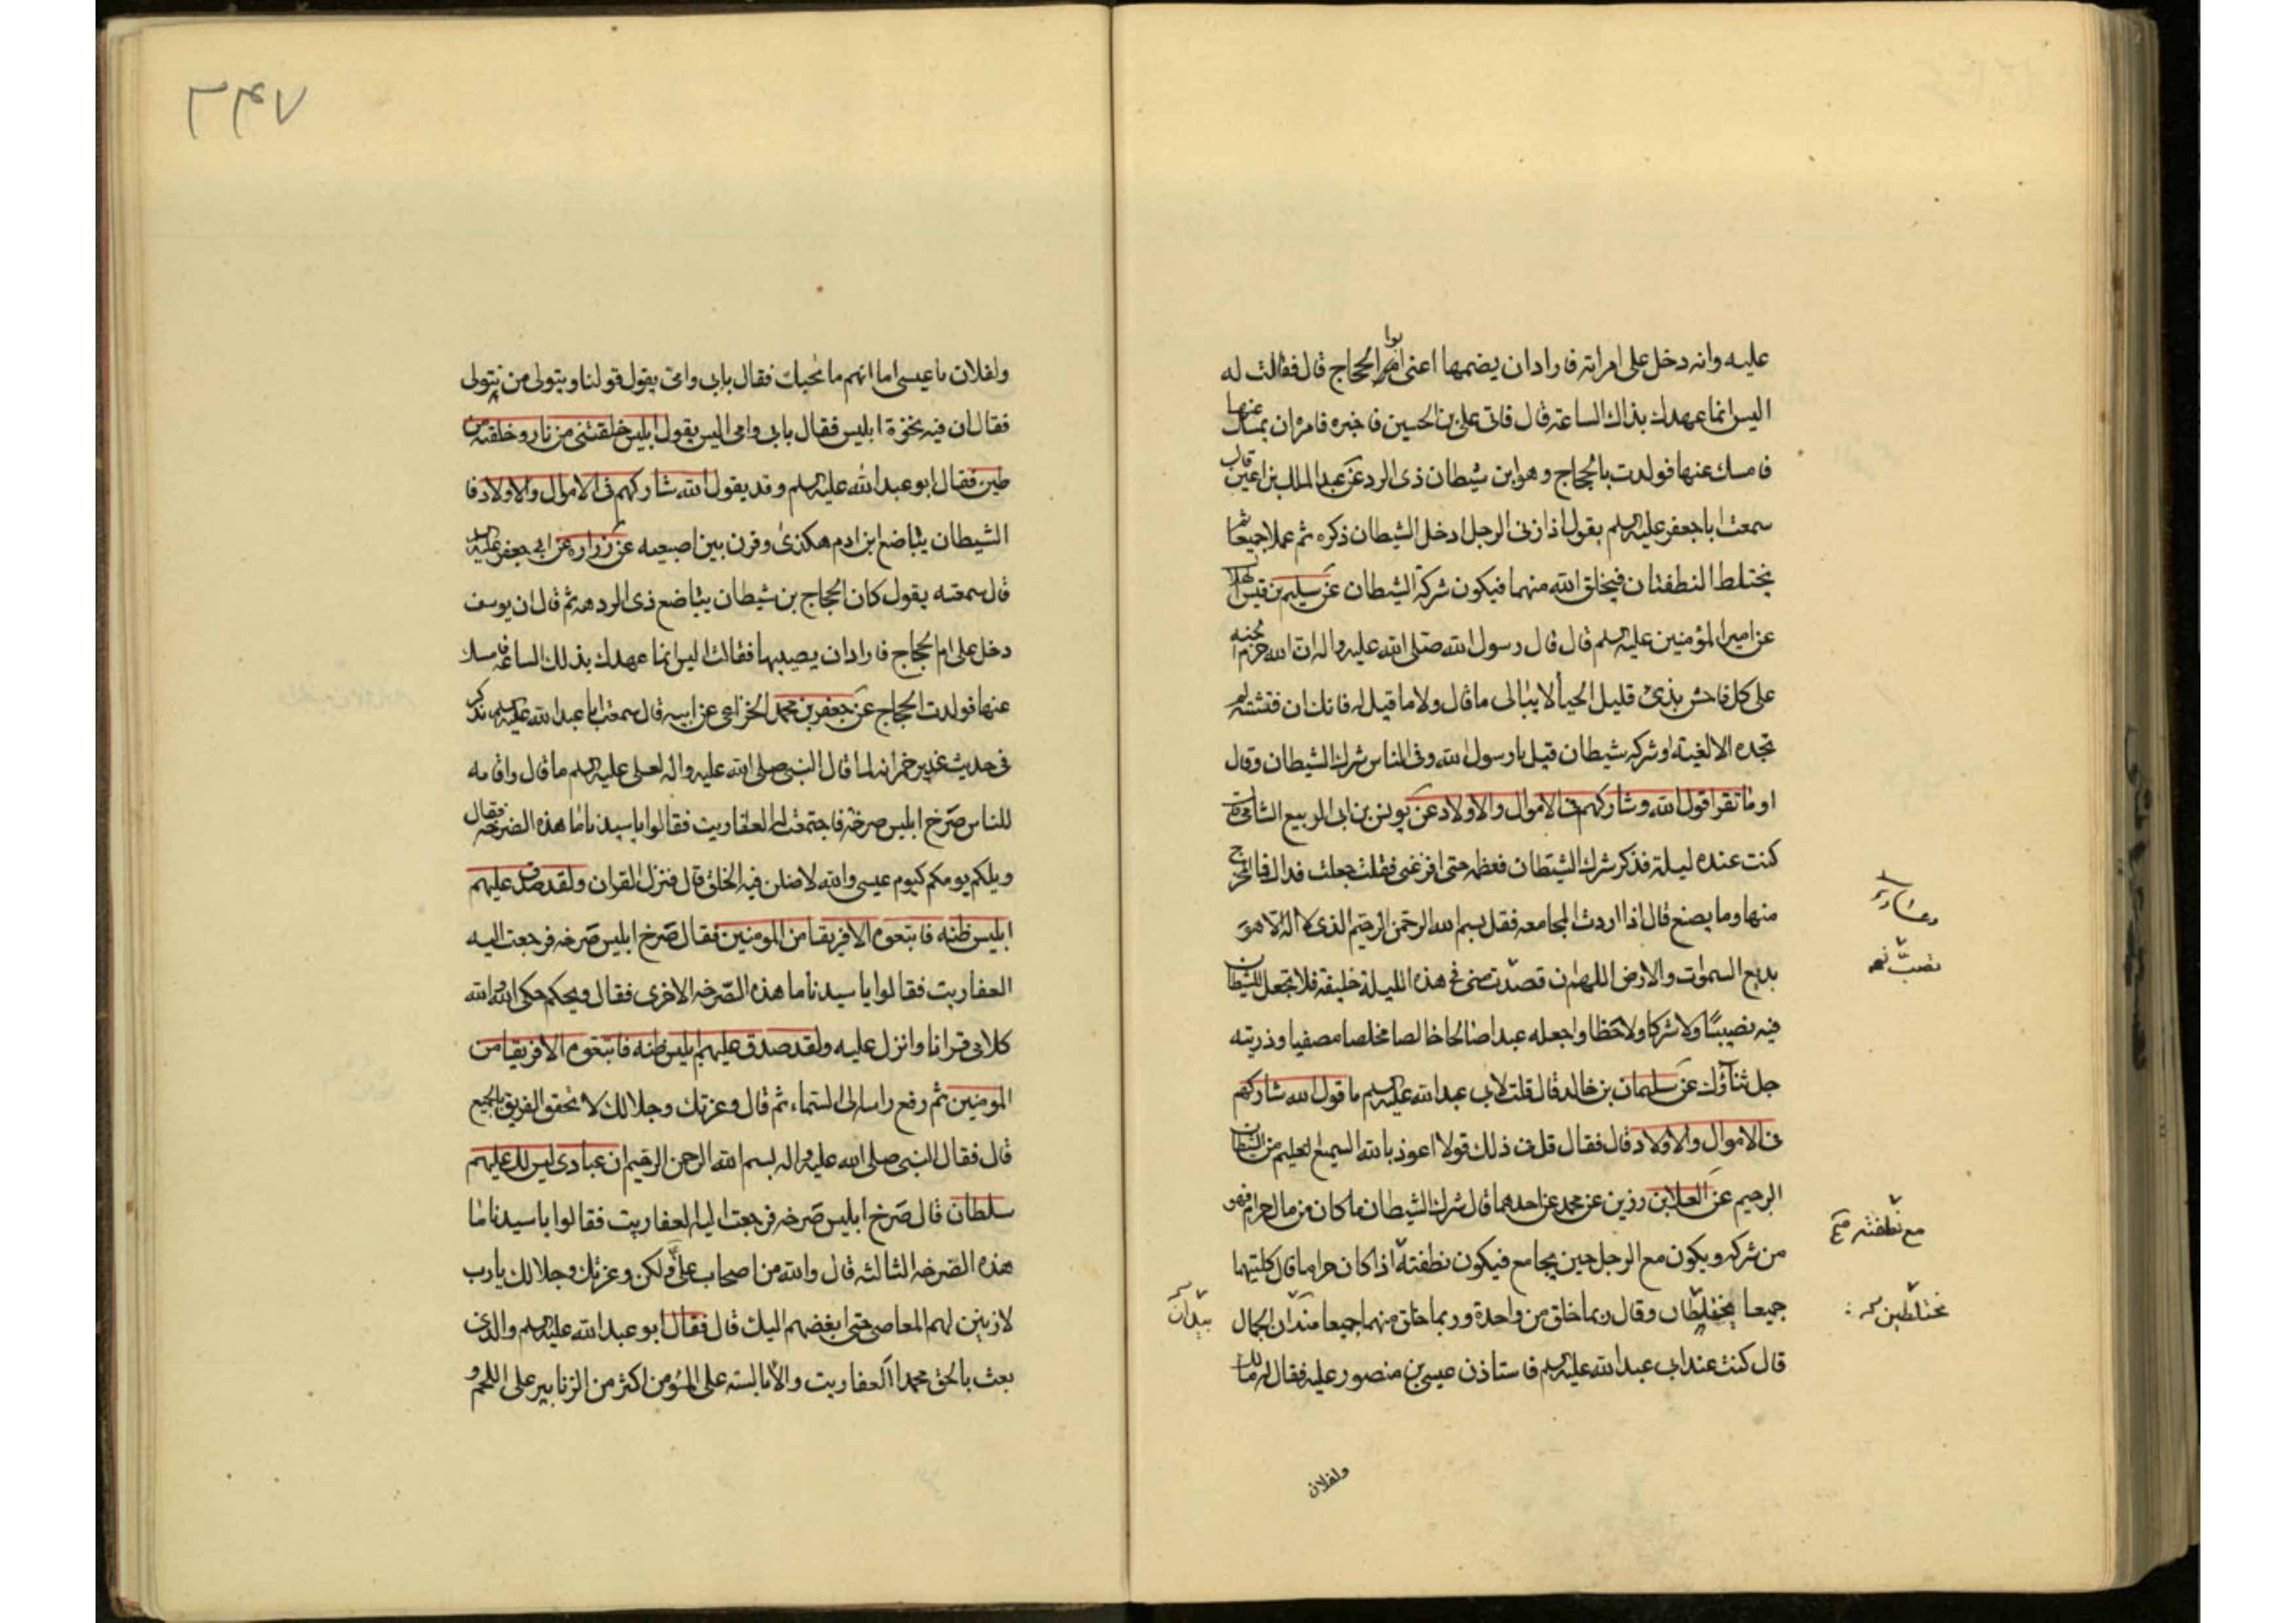 عليه وانه دخل على امراته فاراد ان يضمها اعنى ام الحجاج قال فقالت له
اليس انما عهدك بذاك الساعة قال فاتى على بن الحسين فاخبره فامره ان يمسك عنها
فامسك عنها فولدت بالحجاج وهو ابن شيطان ذى الرد عن عبد الملك بن اعين قال
سمعت ابا جعفر عليه السلم يقول اذا زنى الرجل ادخل الشيطان ذكره ثم عملا جميعا ثم
يختلط النطفتان فيخلق الله منهما فيكون شركة الشيطان عن سليم بن قيس الهلا
عن امير المؤمنين عليه السلم قال قال رسول الله صلى الله عليه واله ان الله حرم الجنه
على كل فاحش بذئ قليل الحيا لا يبالى ما قال ولا ما قيل له فانك ان فتشته لم
تجده الا لغية او شركه شيطان قيل يا رسول الله وفى الناس شرك الشيطان وقال
او ما تقرا قول الله وشاركهم فى الاموال والاولاد عن يونس بن ابى الربيع الشامى قال
كنت عنده ليلة فذكر شرك الشيطان فعظمه حتى افزعنى فقلت جعلت فداك فما المخرج
منها وما يصنع قال اذا اردت المجامعه فقل بسم الله الرحمن الرحيم الذى لا اله الا هو
بديع السموات والارض اللهم ان قصدت منى فى هذه الليلة خليفة فلا تجعل للشيطان
فيه نصيبا ولا شركا ولا حظا واجعله عبدا صالحا خالصا مخلصا مصفيا وذريته
جل ثناؤك عن سليمان بن خالد قال قلت لابى عبد الله عليه السلم ما قول الله شاركهم
فى الاموال والاولاد قال فقال قل فى ذلك قولا اعوذ بالله السميع العليم من الشيطان
الرجيم عن العلا بن رزين عن محمد عن احدهما قال شرك الشيطان ما كان من مال حرام فهو
من شركه ويكون مع الرجل حين يجامع فيكون نطفته اذا كان حراما قال كلتيهما
جميعا يختلطان وقال ربما خلق من واحدة وربما خلق منهما جميعا الجمال
قال كنت عند ابى عبد الله عليه السلم فاستاذن عيسى بن منصور عليه فقال له مالك
قضيت
مع نطفته صح
تختلطين
ولفلان
٣٤٧
ولفلان يا عيسى اما انهم ما يحبك فقال بابى وامى يقول قولنا ويتولى من نتولى
فقال ان فيه نخوة ابليس فقال بابى وامى اليس يقول ابليس خلقتنى من نار وخلقته من
طين فقال ابو عبد الله عليه السلم وقد يقول الله شاركهم فى الاموال والاولاد فا
الشيطان يباضع ابن ادم هكذى وقرن بين اصبعيه عن زراره عن ابى جعفر عليه السلم
قال سمعته يقول كان الحجاج بن شيطان يباضع ذى الردهه ثم قال ان يوسف
دخل على ام الحجاج فاراد ان يصيبها فقالت اليس انما عهدك بذلك الساعة فامسك
عنها فولدت الحجاج عن جعفر بن محمد الخزاعى عن ابيه قال سمعت ابا عبد الله عليه السلم يذكر
فى حديث غدير خم انه لما قال النبى صلى الله عليه واله لعلى عليه السلم ما قال واقامه
للناس صرخ ابليس صرخة فاجتمعت له العفاريت فقالوا يا سيدنا ما هذه الصرخة فقال
ويلكم يومكم كيوم عيسى والله لاضلن فيه الخلق قال فنزل القران ولقد صدق عليهم
ابليس ظنه فاتبعوه الا فريقا من المومنين فقال صرخ ابليس صرخة فرجعت اليه
العفاريت فقالوا يا سيدنا ما هذه الصرخه الاخرى فقال ويحكم حكى الله والله
كلامى قرانا وانزل عليه ولقد صدق عليهم ابليس ظنه فاتبعوه الا فريقا من
المومنين ثم رفع راسه الى السماء ثم قال وعزتك وجلالك لالحقن الفريق بالجميع
قال فقال النبى صلى الله عليه واله بسم الله الرحمن الرحيم ان عبادى ليس لك عليهم
سلطان قال صرخ ابليس صرخه فرجعت اليه العفاريت فقالوا يا سيدنا ما
هذه الصرخه الثالثه قال والله من اصحاب على ولكن وعزتك وجلالك يا رب
لازينن لهم المعاصى حتى ابغضهم اليك قال فقال ابو عبد الله عليه السلم والذى
بعث بالحق محمدا العفاريت والابالسه على المؤمن اكثر من الزنابير على اللحم و